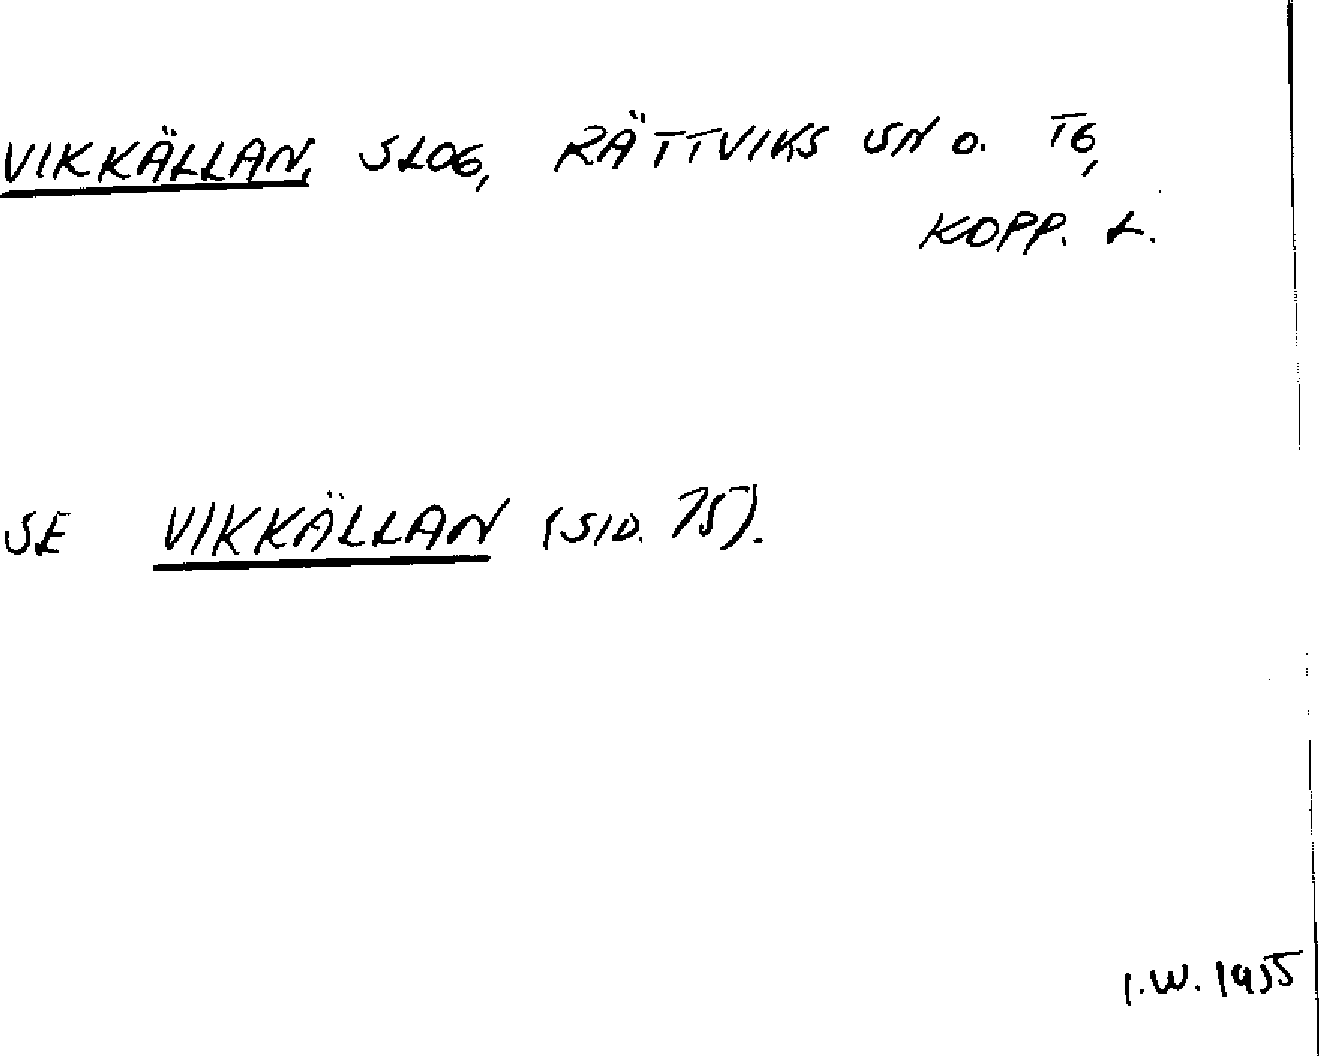 VIKKÄLLAN, SLOG, RÄTTVIKS SN O. TG,
KOPP. L.
SE VIKKÄLLAN (SID. 75).
I.W. 1955